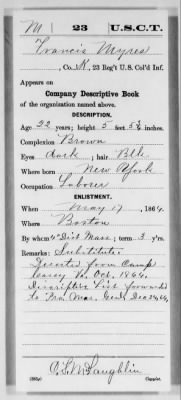 M | 23 | U.S.C.T.
Francis Myres
, Co. K, 23 Reg't U.S. Col'd Inf.
Appears on
Company Descriptive Book
of the organization named above.
DESCRIPTION.
Age 22 years; height 5 feet 5½ inches.
Complexion Brown
Eyes dark ; hair Blk
Where born New York
Occupation Laborer
ENLISTMENT.
When May 17, 1864.
Where Boston
By whom 4" Dist Mass; term 3 y'rs.
Remarks: Substitute.
Deserted from Camp
Casey Va. Oct, 1864.
Discriptive List forwarded
to Pro. Mar. Genl. Dec 24, 64.
McLaughlin
Copyist.